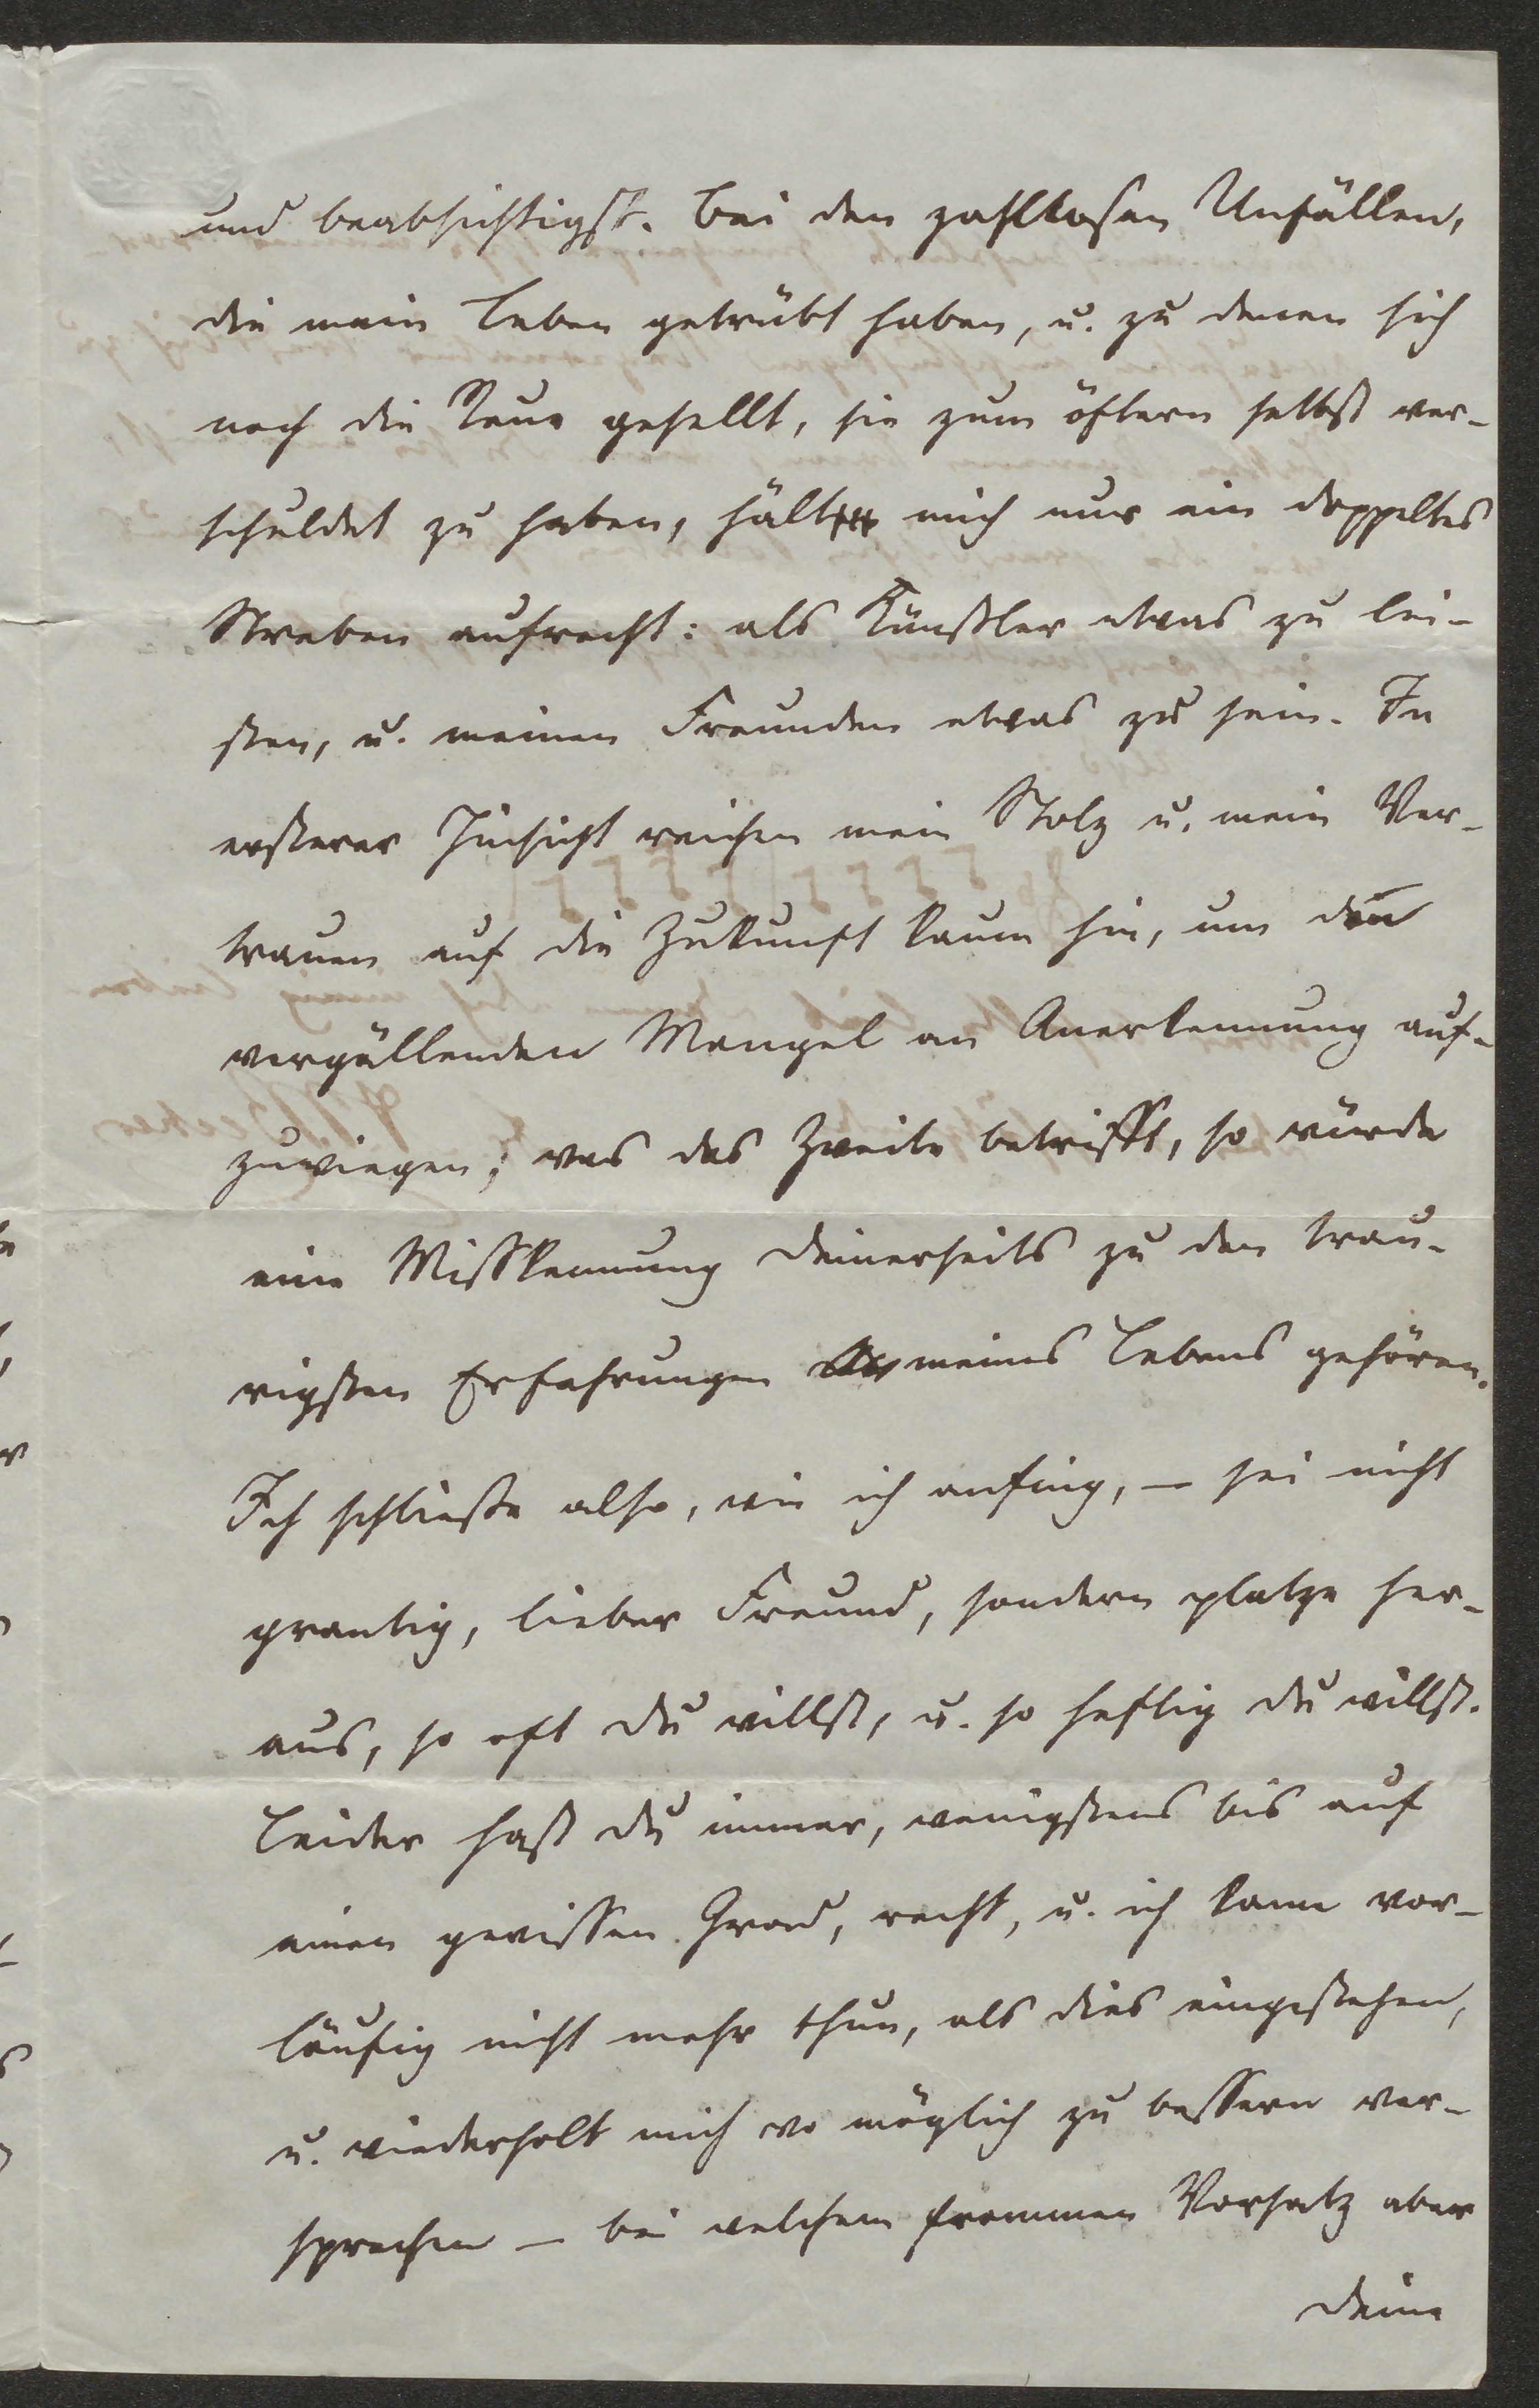 und beabsichtigst. Bei den zahllosen Unfällen,
die mein Leben getrübt haben, u. zu denen sich
noch die Reue gesellt, sie zum öftern selbst ver-
schuldet zu haben, hält mich nur ein doppeltes
Streben aufrecht: als Künstler etwas zu lei-
sten, u. meinen Freunden etwas zu sein. In
ersterer Hinsicht reichen mein Stolz u. mein Ver-
trauen auf die Zukunft kaum hin, um den
vergällenden Mangel an Anerkennung auf-
zuwiegen; was das Zweite betrifft, so würde
eine Misskennung Deinerseits zu den trau-
rigsten Erfahrungen meines Lebens gehören.
Ich schließe also, wie ich anfing, – sei nicht
grantig, lieber Freund, sondern platze her-
aus, so oft Du willst, u. so heftig Du willst.
Leider hast Du immer, wenigstens bis auf
einen gewissen Grad, recht, u. ich kann vor-
läufig nicht mehr thun, als dies eingestehen,
u. wiederholt mich wo möglich zu bessern ver-
sprechen – bei welchem frommen Vorsatz aber
Deine